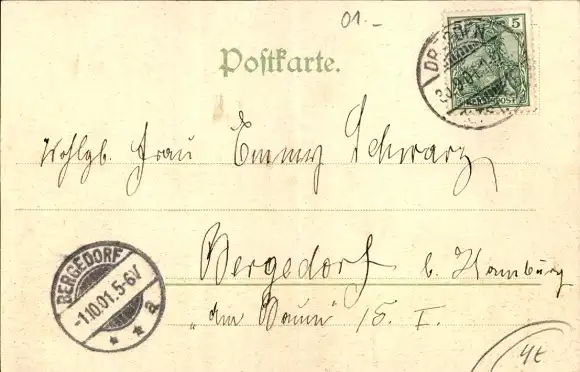 01.-
Postkarte.
5
DRESDEN
REICHSPOST
Wohlgb. Frau Emmy Schwarz
Bergedorf b. Hamburg
"am Baum" 15. I.
BERGEDORF
-1.10.01.5-6N
* * a
4t